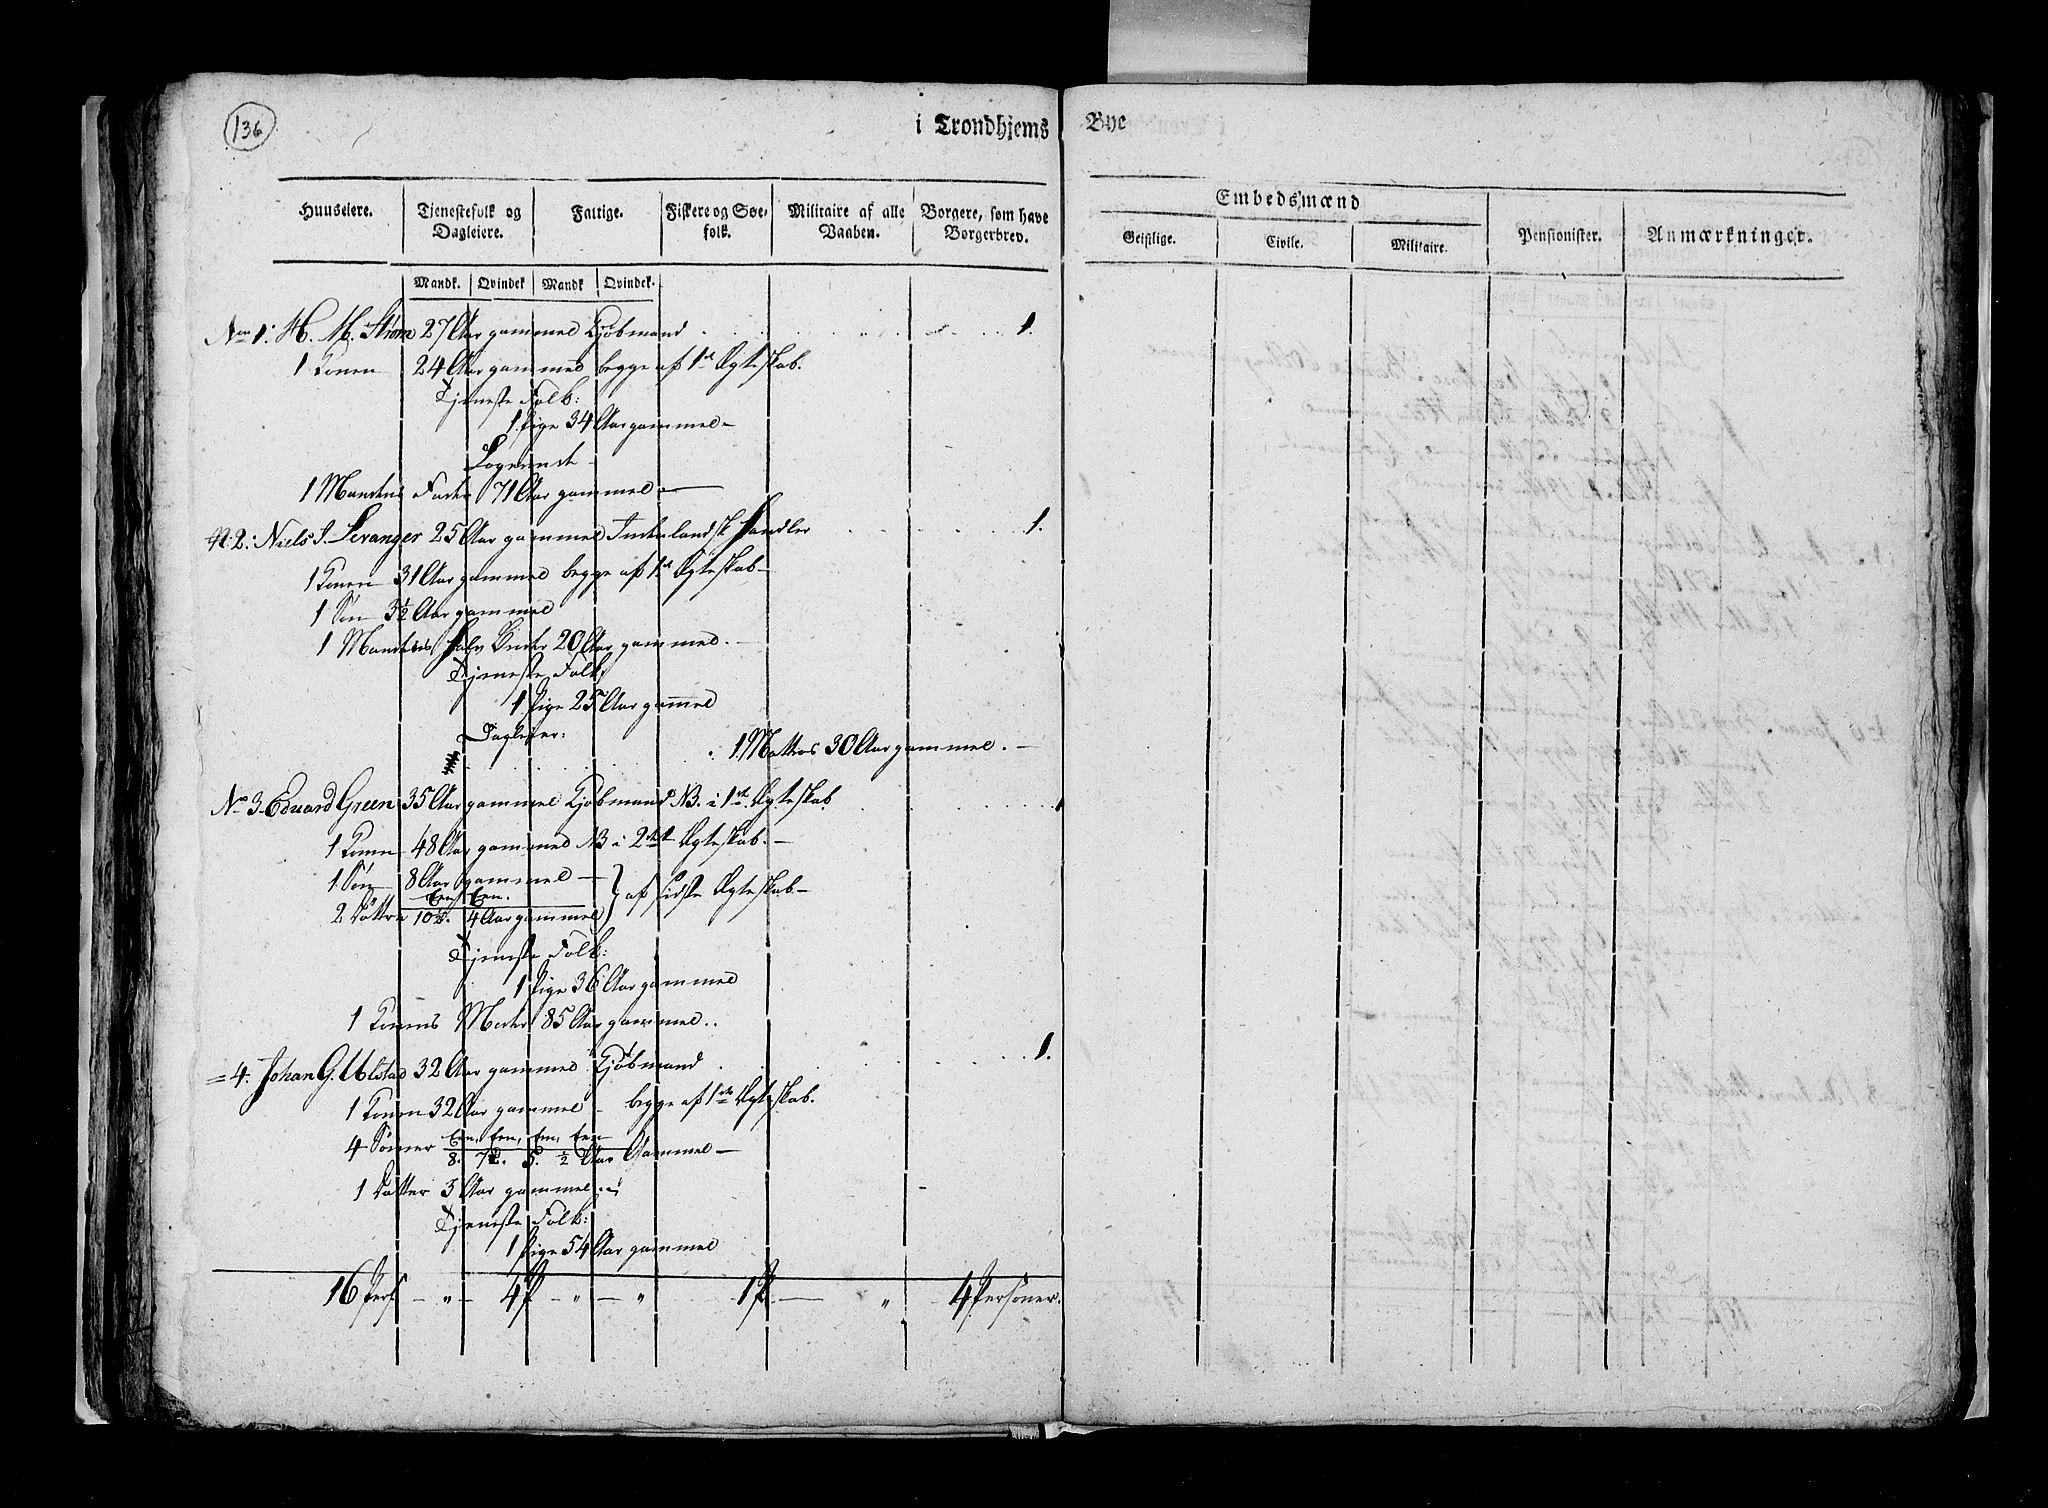 136
i Trondhjems Bye
Huuseiere. Tjenestefolk og Dagleiere. Fattige. Fiskere og Søefolk. Militaire af alle Vaaben. Borgere, som have Borgerbrev. Embedsmænd Pensionister. Anmærkninger.
Geistlige. Civile. Militaire.
Mandk. Qvindek Mandk Qvindek.
No 1: H. M. Strøm 27 Aar gammel Kjøbmand 1.
1 Konen 24 Aar gammel begge af 1te Ægteskab.
Tjeneste Folk:
1 Pige 34 Aar gammel –
Logerende –
1 Mandens Fader 71 Aar gammel –
N: 2: Niels J. Levanger 25 Aar gammel Inderlandsk Handler 1.
1 Konen 31 Aar gammel begge af 1te Ægteskab –
1 Søn 3½ Aar gammel
1 Mandens halv Broder 20 Aar gammel. –
Tjeneste Folk;
1 Pige 25 Aar gammel
Dagleier:
1 Matros 30 Aar gammel. –
No 3. Eduard Green 35 Aar gammel Kjøbmand NB. i 1te Ægteskab 1
1 Konen 48 Aar gammel NB i 2det Ægteskab. –
1 Søn 8 Aar gammel –
Een, Een.
2 Døttre 10½. 4 Aar gammel } af sidste Ægteskab –
Tjeneste Folk:
1 Pige 36 Aar gammel
1 Konens Moder 85 Aar gammel..
= 4: Johan G. Ulstad 32 Aar gammel Kjøbmand 1.
1 Konen 32 Aar gammel – begge af 1te Ægteskab.
4 Sønner Een, Een, Een, Een
8. 7½. 5. ½ Aar Gammel –
1 Datter 3 Aar gammel
Tjeneste Folk:
1 Pige 54 Aar gammel
16 Pers – " – 4 P – " – " 1 P – " 4 Personer.